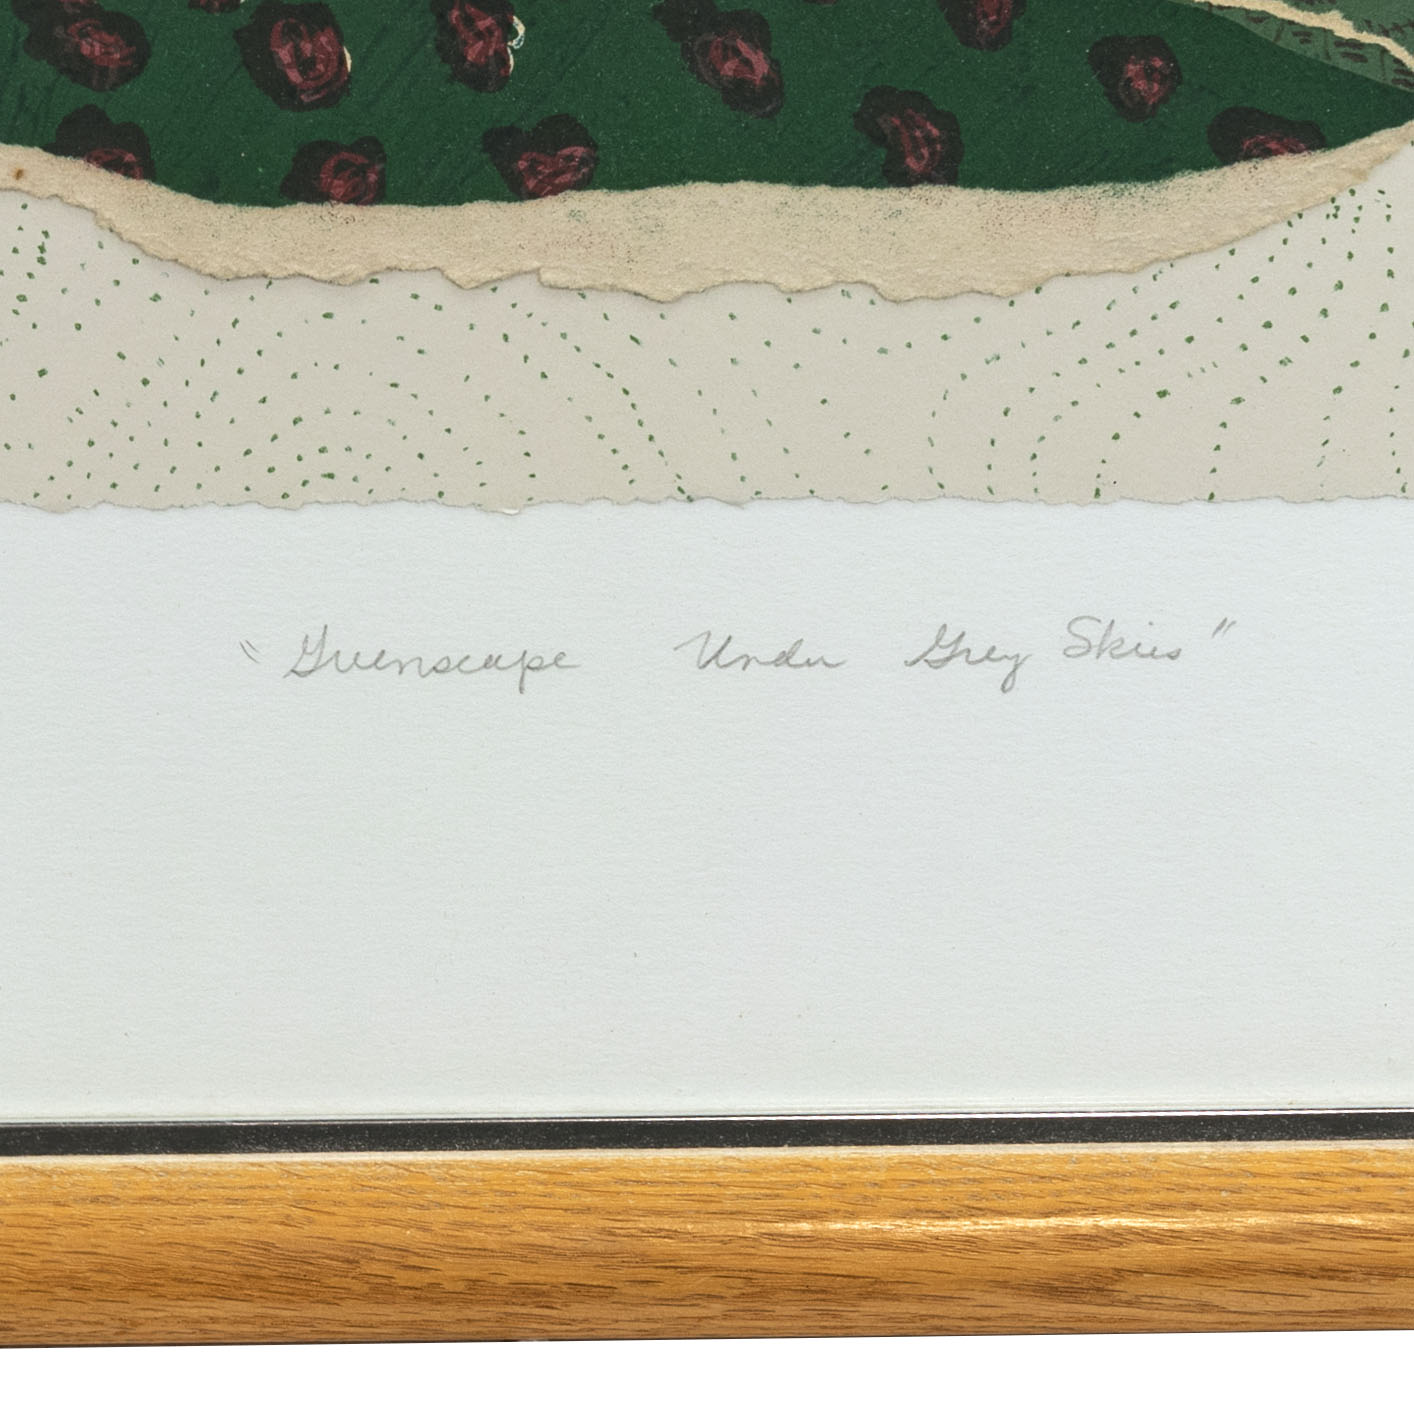 "Greenscape Under Grey Skies"